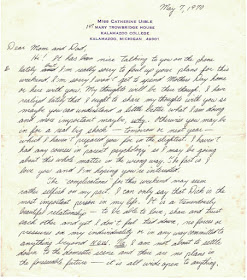 May 7, 1970
MISS CATHERINE UIBLE
1st MARY TROWBRIDGE HOUSE
KALAMAZOO COLLEGE
KALAMAZOO, MICHIGAN 49001
Dear Mom and Dad,
Hi! It has been nice talking to you on the phone
lately and I'm really sorry to foul up your plans for this
weekend. I'm sorry I won't get to spend Mothers Day home
or here with you. My thoughts will be there though. I have
realized lately that I ought to share my thoughts with you so
maybe you can understand a little better what I am doing
and more importantly maybe, why. Otherwise you may be
in for a real big shock — tomorrow or next year —
which I haven't prepared you for in the slightest. I haven't
had any courses in parent psychology so I may be going
about this whole matter in the wrong way. In fact is I
love you and I'm hoping you're interested.
The complications for this weekend may seem
rather selfish on my part. I can only say that Dick is the
most important person in my life. It is a tremendously
beautiful relationship — to be able to love, share and trust
each other and yet I don't feel tied down, no force or
pressures on my individuality or in any way committed to
anything beyond now. No I am not about to settle
down to the domestic scene and there are no plans in
the foreseeable future — it is all wide open to anything.